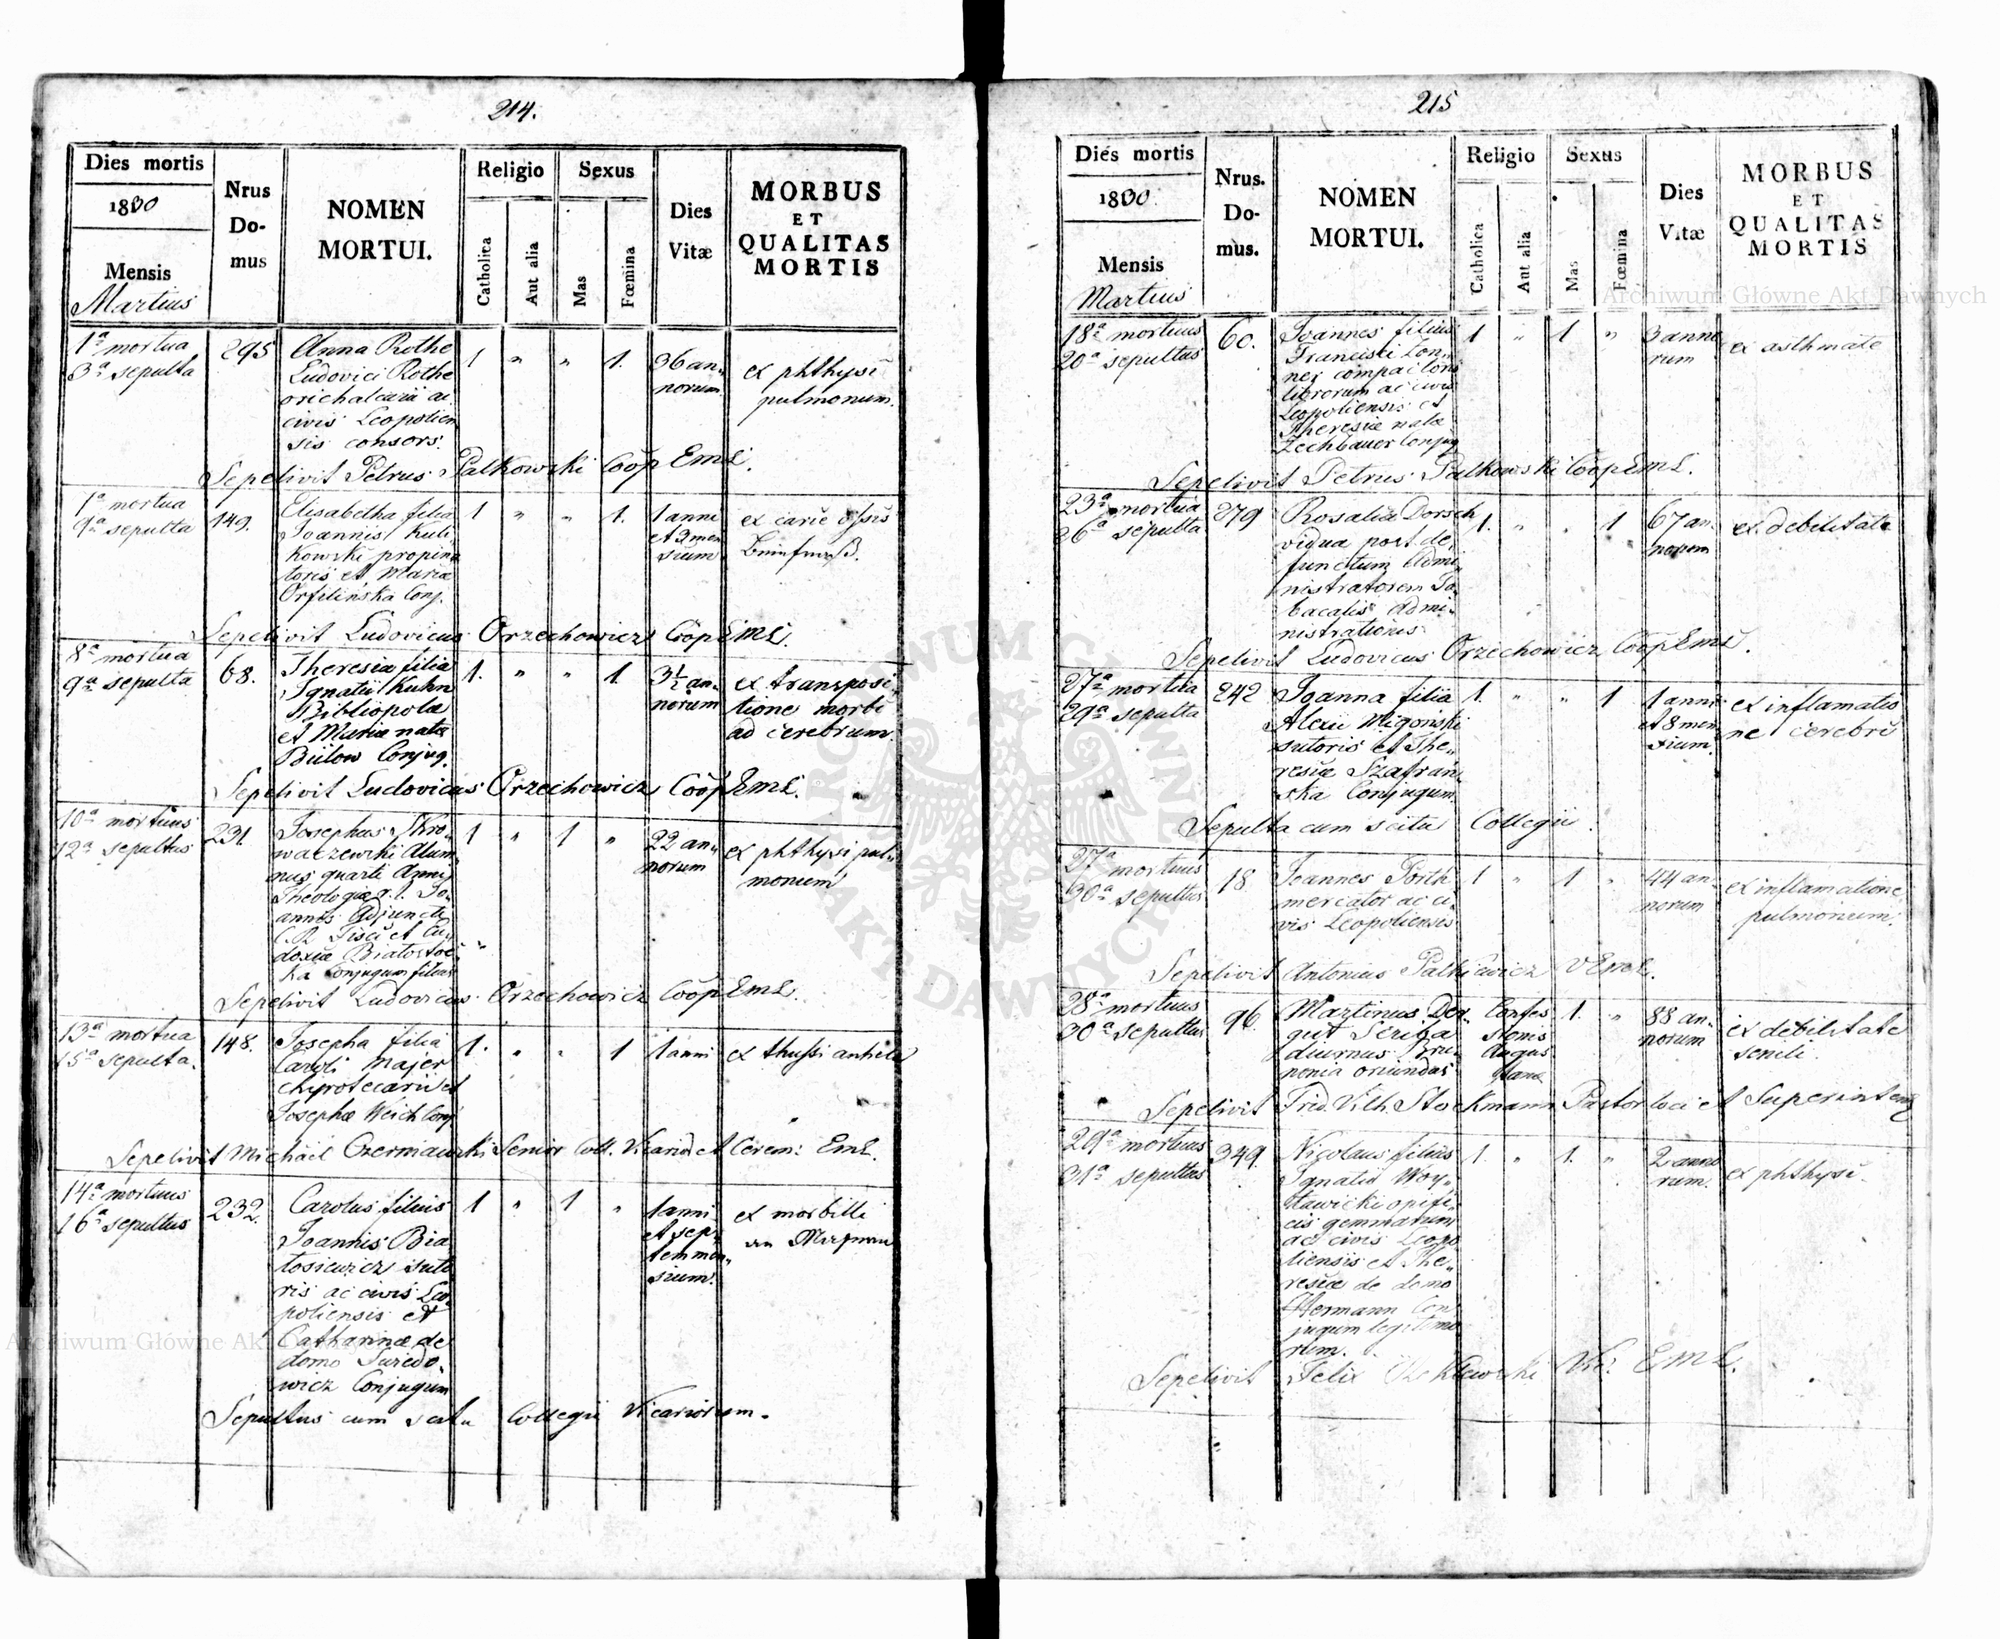 214.
Dies mortis
1830
Mensis
Martius
Nrus
Do-
mus
NOMEN
MORTUI.
Religio
Catholica
Aut alia
Sexus
Mas
Fœmina
Dies
Vitæ
MORBUS
ET
QUALITAS
MORTIS
1ª mortua
3ª sepulta
295
Anna Rothe
Ludovici Rothe
orichalcarii ac
civis Leopolien
sis consors.
1 " " 1.
36 an-
norum
ex phthysi
pulmonum.
Sepelivit Petrus Palkowski Coop EML.
1ª mortua
sepulta
149.
Elisabetha filia
Joannis Kuli
kowski propina
toris et Mariæ
Conj.
1 " " 1.
1 anni
et 9 men
sium
ex carie ossis
Sepelivit Ludovicus Orzechowicz Coop EML.
8ª mortua
9ª sepulta
68.
Theresia filia
Ignatii Kuhn
Bibliopolæ
et Mariæ natæ
Bülow Conjug.
1. " " 1.
3½ an-
norum
ex transposi
tione morbi
ad cerebrum.
Sepelivit Ludovicus Orzechowicz Coop EML.
10ª mortuus
12ª sepultus
231.
Josephus Skro-
waczewski Alum
nus quarti Anni
Theologiæ r. l. Jo-
annis Adjuncti
C. R. Fisci et Eu-
doxiæ Białostoc
ka Conjugum filius
1 " 1 "
22 an-
norum
ex phthysi pul-
monum
Sepelivit Ludovicus Orzechowicz Coop EML.
13ª mortua
15ª sepulta.
148.
Josepha filia
Caroli Majer
chyrotecarii et
Josephæ Weich Conj
1. " " 1
1 anni
ex thussi anhela
Sepelivit Michael Czermański Senior Coll. Vicarior et Cerem: EML.
14ª mortuus
16ª sepultus
232.
Carolus filius
Joannis Bia
łosiewicz suto
ris ac civis Leo
poliensis et
Catharinæ de
domo
wicz Conjugum
1 " 1 "
1 anni
et sep-
tem men-
sium.
ex morbilli
an Masern
Sepultus cum scitu Collegii Vicariorum.
215
Dies mortis
1830.
Mensis
Martius
Nrus.
Do-
mus.
NOMEN
MORTUI.
Religio
Catholica
Aut alia
Sexus
Mas
Fœmina
Dies
Vitæ
MORBUS
ET
QUALITAS
MORTIS
18ª mortuus
20ª sepultus
60.
Joannes filius
Francisci
compactoris
librorum ac civis
Leopoliensis et
Theresiæ natæ
Zechbauer Conjug
1 " 1 "
3 anno
rum
ex asthmate
Sepelivit Petrus Palkowski Coop EML.
23ª mortua
26ª sepulta
279
Rosalia Dorsch
vidua post de-
functum Admi
nistratorem Ta-
bacalis Admi-
nistrationis
1. " " 1
67 an-
norum
ex debilitate
Sepelivit Ludovicus Orzechowicz Coop EML.
27ª mortua
29ª sepulta
242
Joanna filia
Alexii Migonski
sutoris et The-
resiæ Szafran
ska Conjugum
1. " " 1
1 anni
et 8 men
sium.
ex inflamatio
ne cerebri
Sepulta cum scitu Collegii.
27ª mortuus
30ª sepultus
18
Joannes Porth
mercator ac ci-
vis Leopoliensis
1 " 1 "
44 an-
norum
ex inflamatione
pulmonum.
Sepelivit Antonius Palkiewicz V EML.
28ª mortuus
30ª sepultus
96.
Martinus Der-
gut Scriba
diurnus Bru-
nonia oriundus
Confes
sionis
Augus
tanæ
1. "
88 an-
norum
ex debilitate
senili.
Sepelivit Frid. Vilh. Stockmann Pastor loci et Superintend
29ª mortuus
31ª sepultus
349.
Nicolaus filius
Ignatii Woy-
tawicki opifi-
cis gemmarum
ac civis Leopo
liensis et The-
resiæ de domo
Hermann Con
jugum legitimo
rum.
1. " 1. "
2 anno
rum.
ex phthysi.
Sepelivit Felix Vic: EML.
Archiwum Główne Akt Dawnych
Archiwum Główne Akt Dawnych
ARCHIWUM GŁÓWNE AKT DAWNYCH